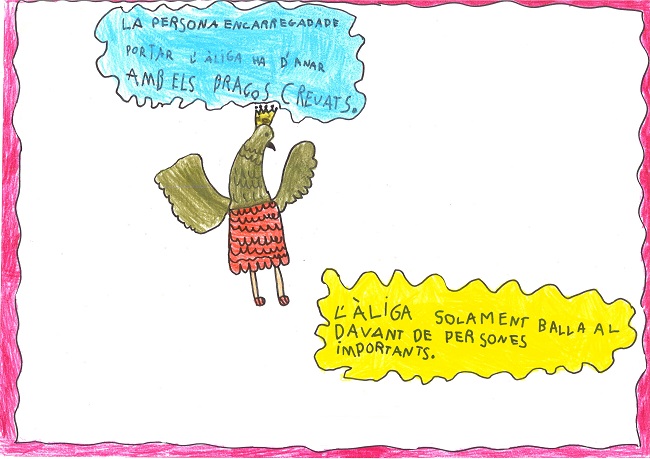 LA PERSONA ENCARREGADADE
PORTAR L'ÀLIGA HA D'ANAR
AMB ELS BRAÇOS CREUATS.
L'ÀLIGA SOLAMENT BALLA AL
DAVANT DE PERSONES
IMPORTANTS.